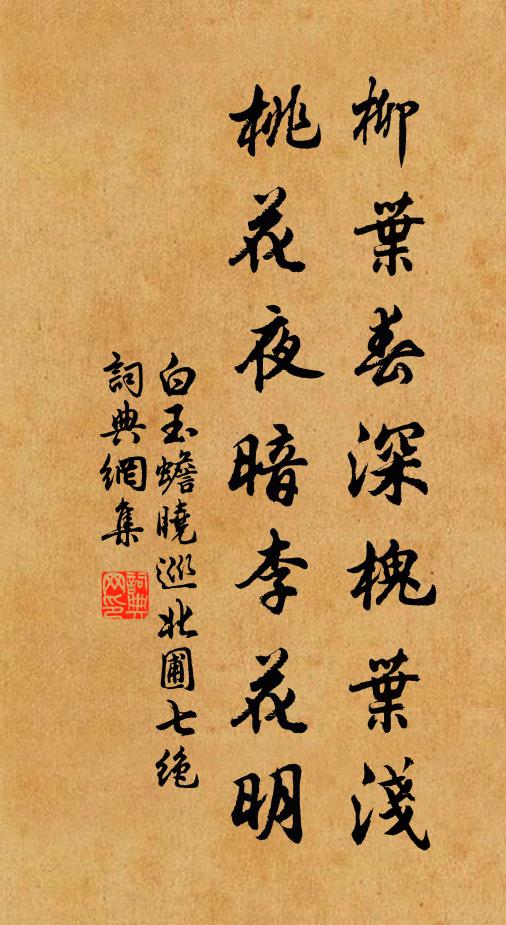 柳葉春深槐葉淺
桃花夜暗李花明
白玉蟾曉巡北圃七絶
詞典網集
詞典网印